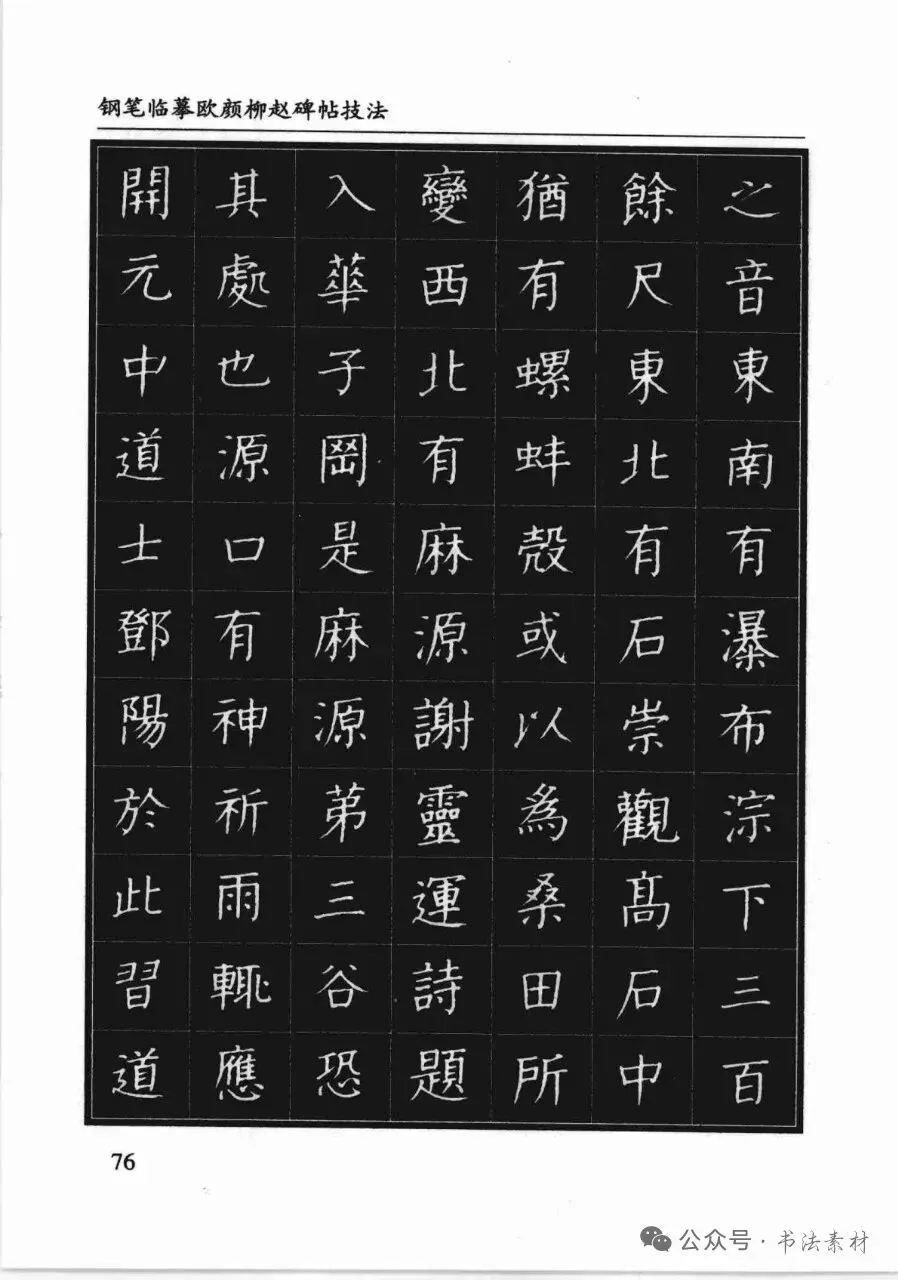 钢笔临摹欧颜柳赵碑帖技法
之音東南有瀑布淙下三百
餘尺東北有石崇觀高石中
猶有螺蚌殼或以為桑田所
變西北有麻源謝靈運詩題
入華子岡是麻源弟三谷恐
其處也源口有神祈雨輒應
開元中道士鄧陽於此習道
76
公众号·书法素材